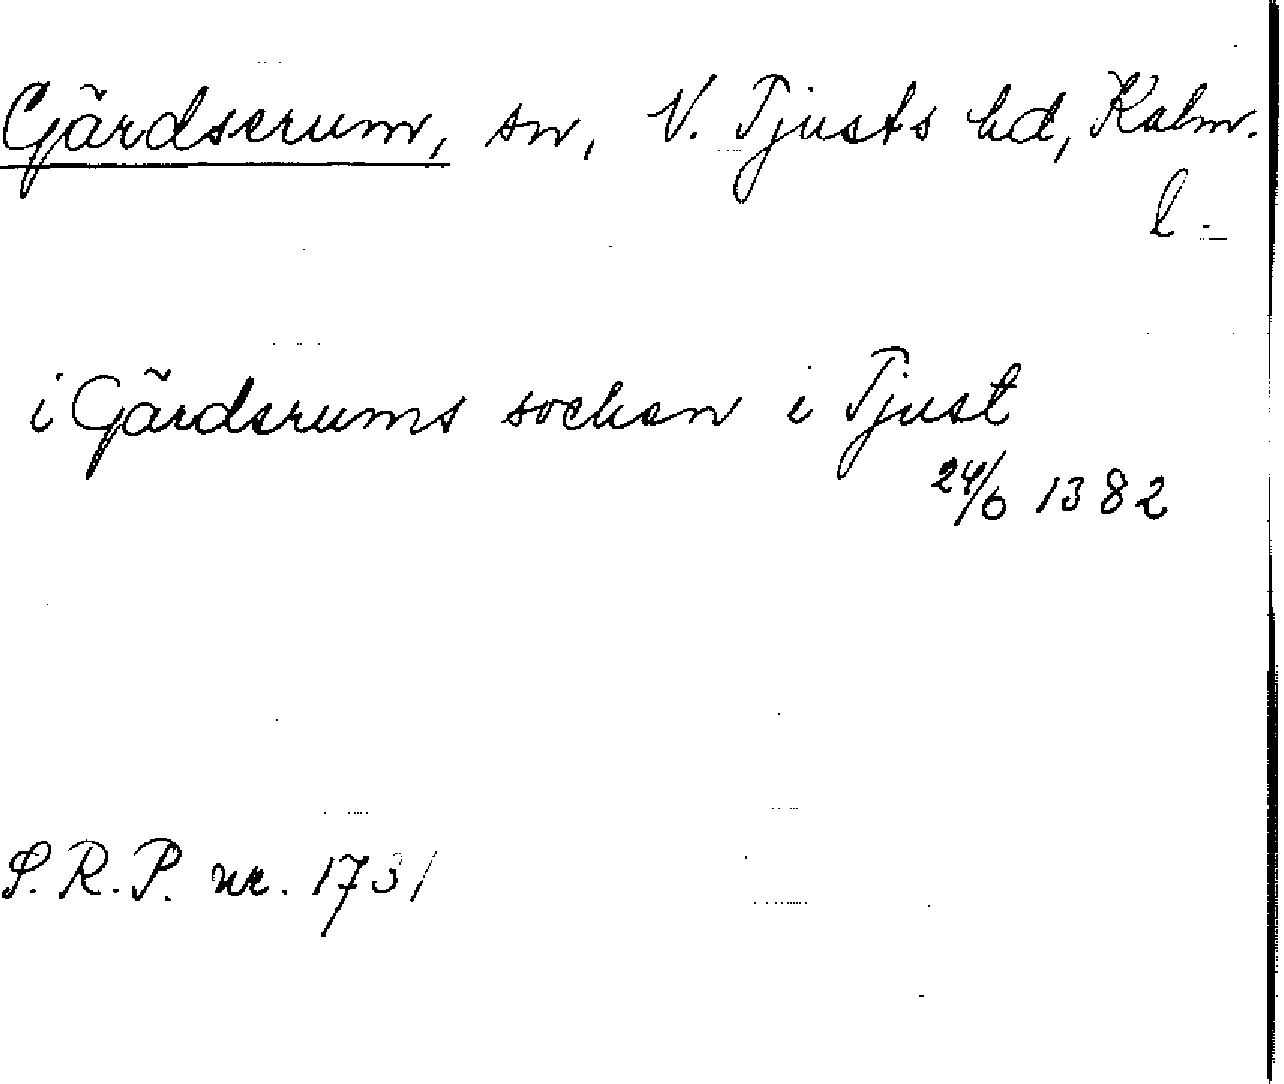 Gärdserum, sn, V. Tjusts hd, Kalm.
l.
i Gärdsrums sockan i Tjust
24/6 1382
S.R.P. nr. 1731